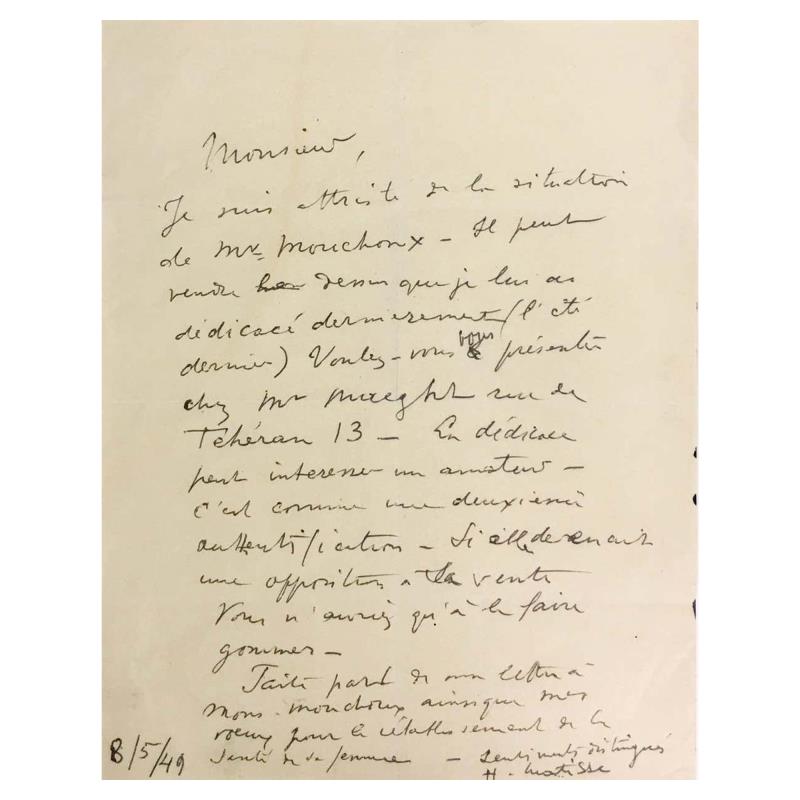 Monsieur,
Je suis attristé de la situation
de Mr. Mouchoux – Il peut
vendre dessin que je lui ai
dédicacé dernièrement (l'été
dernier) Voulez-vous vous présenter
chez Mr Maeght rue de
Téhéran 13 – La dédicace
peut interesser un amateur –
c'est comme une deuxième
authentification – Si elle devenait
une opposition à la vente
Vous n'auriez qu'à la faire
gommer –
Faites part de ma lettre à
Mons. Mouchoux ainsi que mes
voeux pour le rétablissement de la
santé de sa femme – Sentiments distingués
8/5/49 H. Matisse